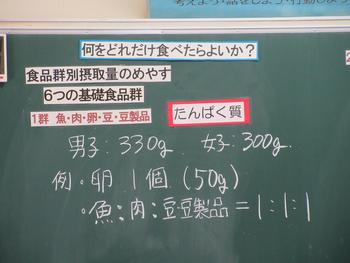 考えよう・話をしよう・行動しよ
何をどれだけ食べたらよいか？
食品群別摂取量のめやす
6つの基礎食品群
1群 魚・肉・卵・豆・豆製品
たんぱく質
男子：330g 女子：300g
例・卵 1個（50g）
・魚：肉：豆・豆製品＝1：1：1